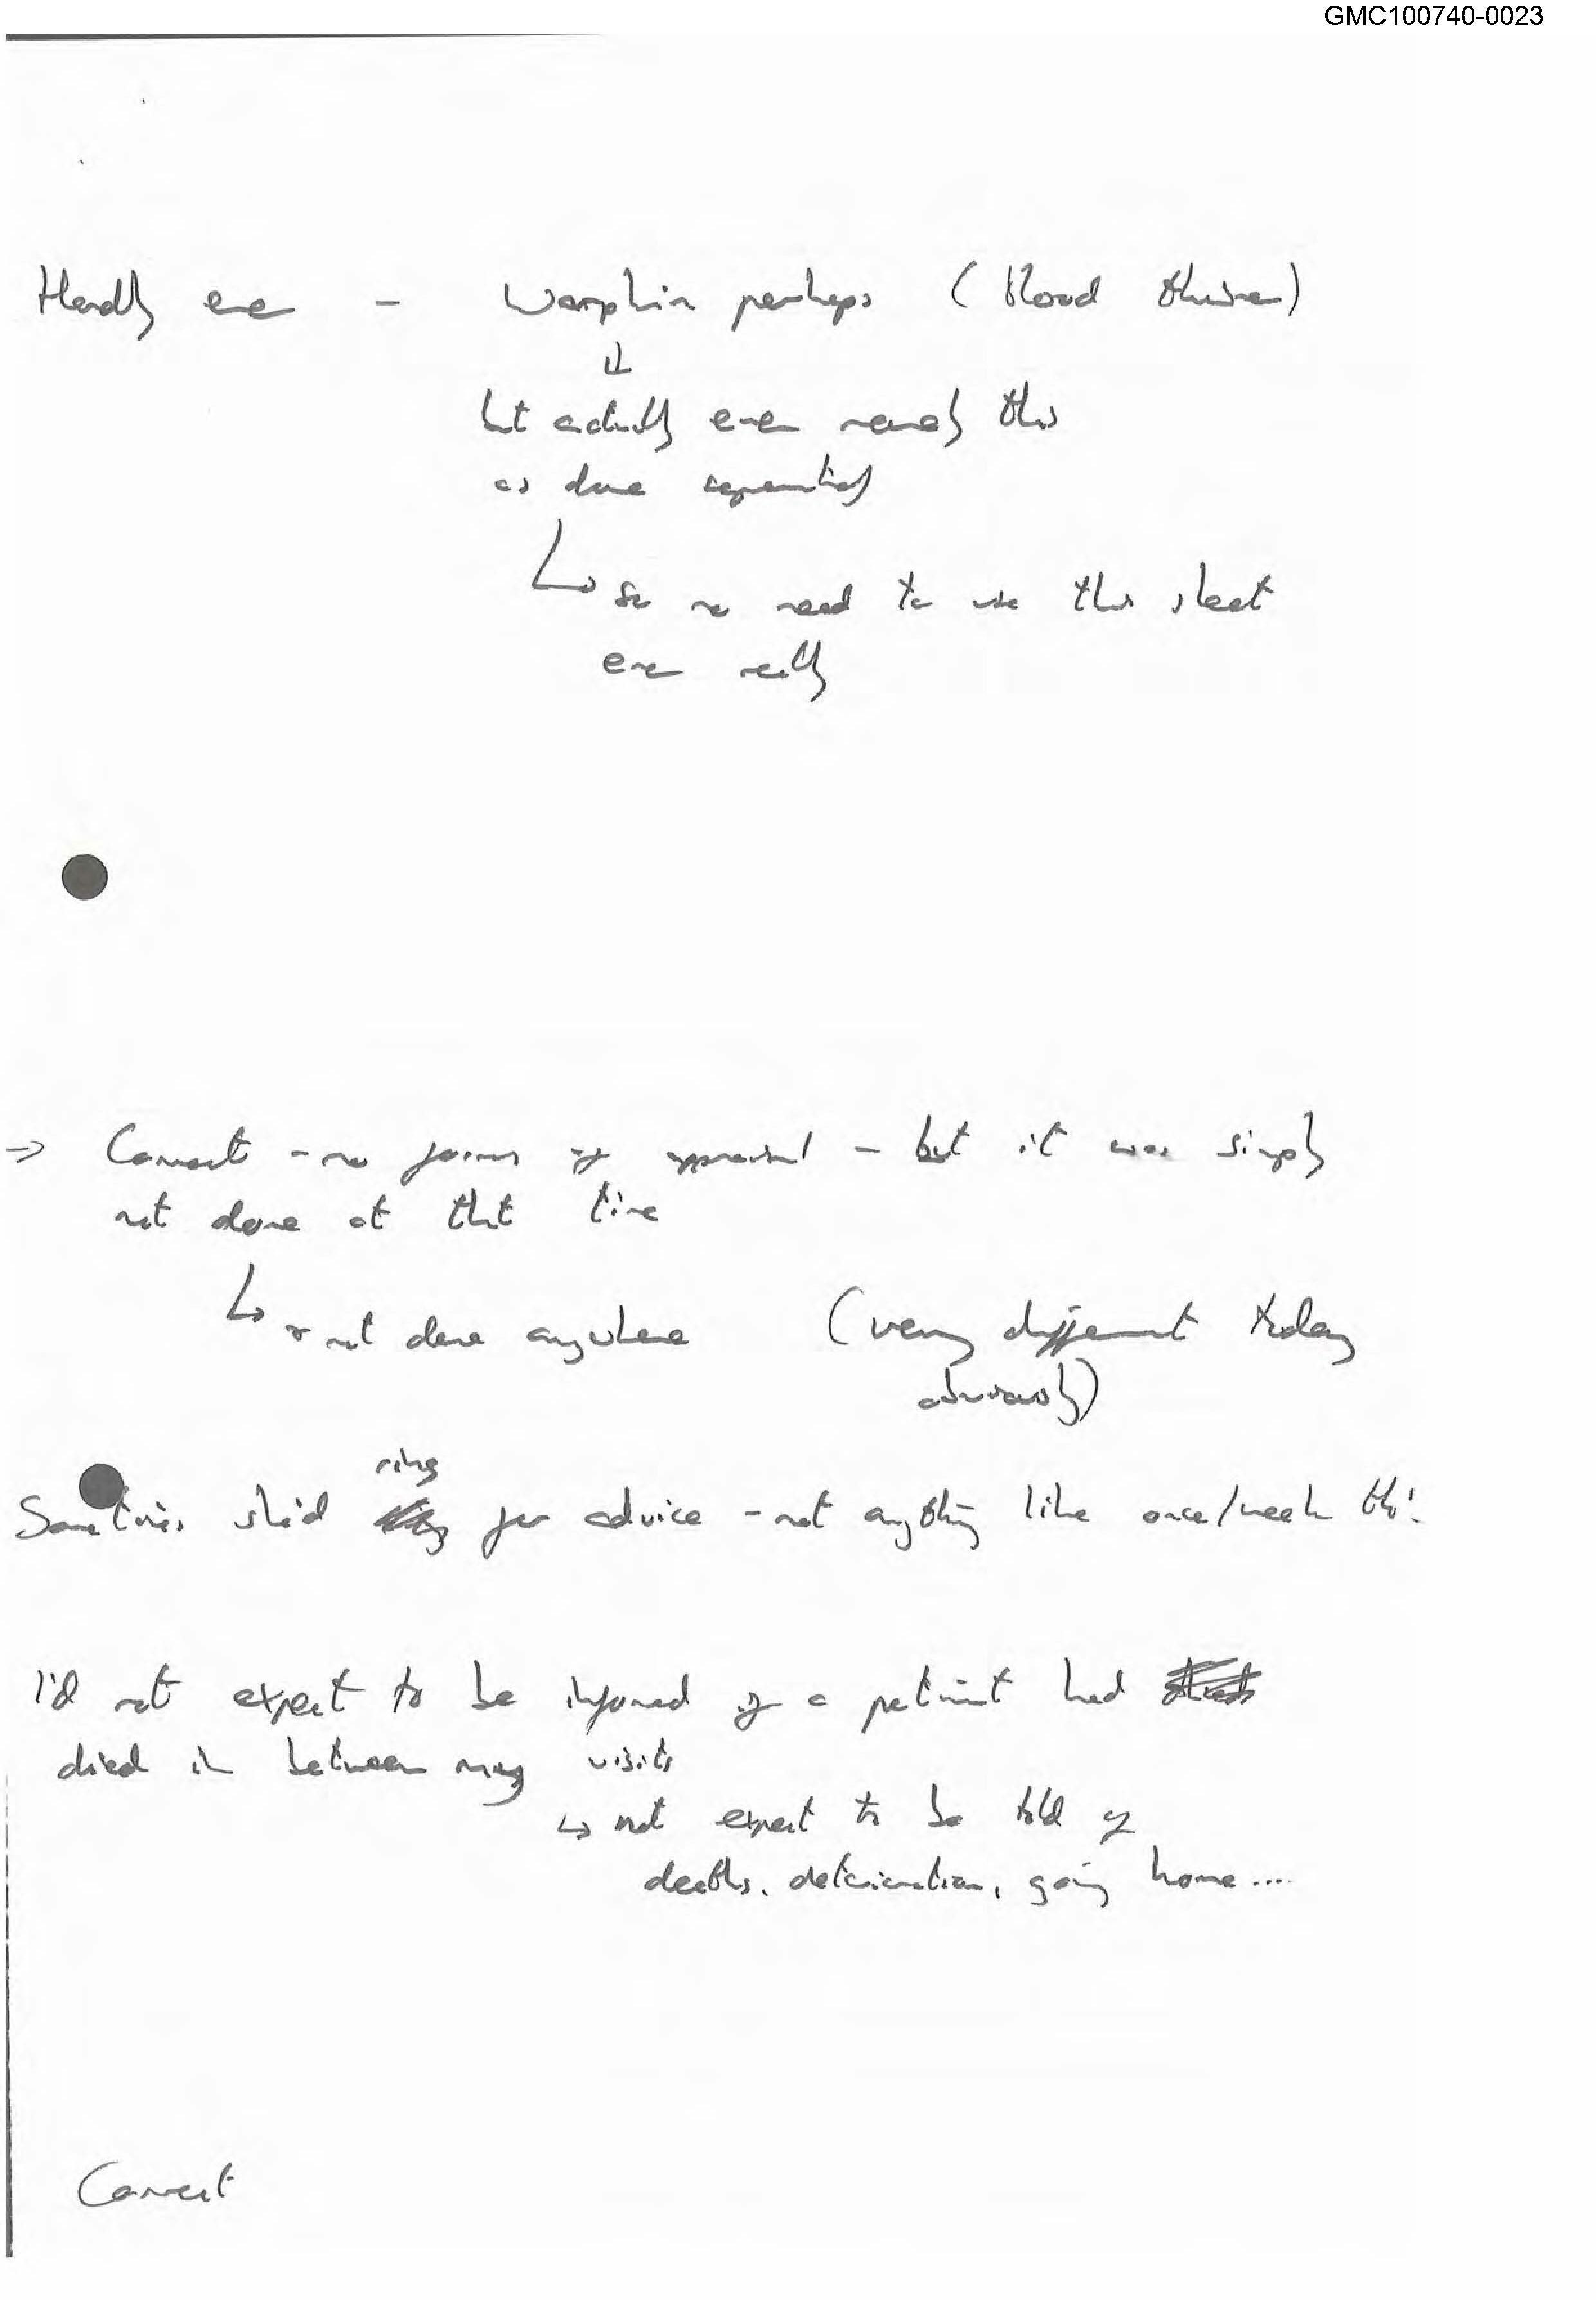 GMC100740-0023
Hardly ever - Warphin perhaps (blood thinner)
↓
but actually even rarely this
as done separately
↳ so no need to use this sheet
ever really
⇒ Correct - no forms of appraisal - but it was simply
not done at that time
↳ not done anywhere (very different today
obviously)
ring
Sometimes she'd for advice - not anything like once/week tho'.
I'd not expect to be informed if a patient had
died in between my visits
↳ not expect to be told of
deaths, deterioration, going home....
Correct